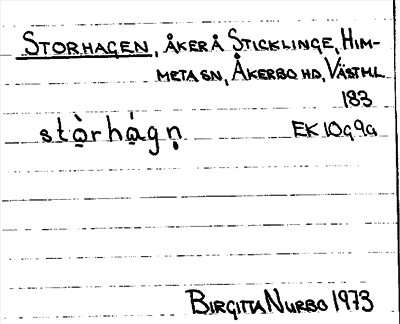 STORHAGEN, ÅKER Å STICKLINGE, HIM-
META SN, ÅKERBO HD, VÄSTML
183
stò̱rhá̱gṇ EK 10g9a
BIRGITTA NURBO 1973